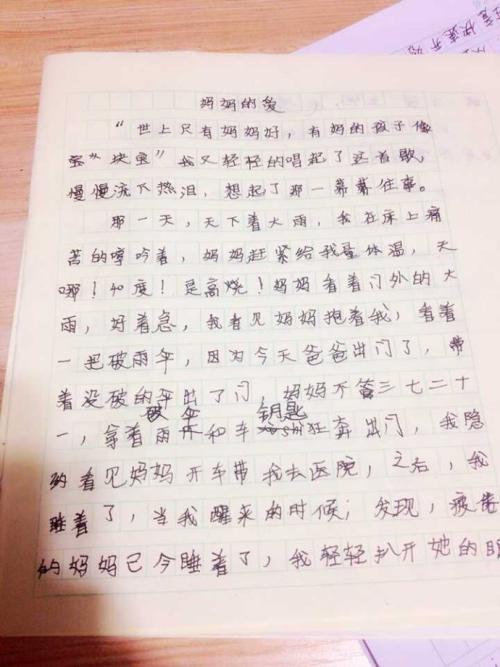 妈妈的爱
“世上只有妈妈好，有妈的孩子像
宝“块宝”我又轻轻的唱起了这首歌，
慢慢流下热泪，想起了那一幕幕往事。
那一天，天下着大雨，我在床上痛
苦的哼吟着，妈妈赶紧给我量体温，天
哪！40度！是高烧！妈妈看着门外的大
雨，好着急，我看见妈妈抱着我，看着
一把破雨伞，因为今天爸爸出门了，带
着没破的伞出了门，妈妈不管三七二十
破伞 钥匙
一，拿着雨和车狂奔出门，我隐
约看见妈妈开车带我去医院，之后，我
睡着了，当我醒来的时候；发现，疲惫
的妈妈已今睡着了，我轻轻扒开她的眼